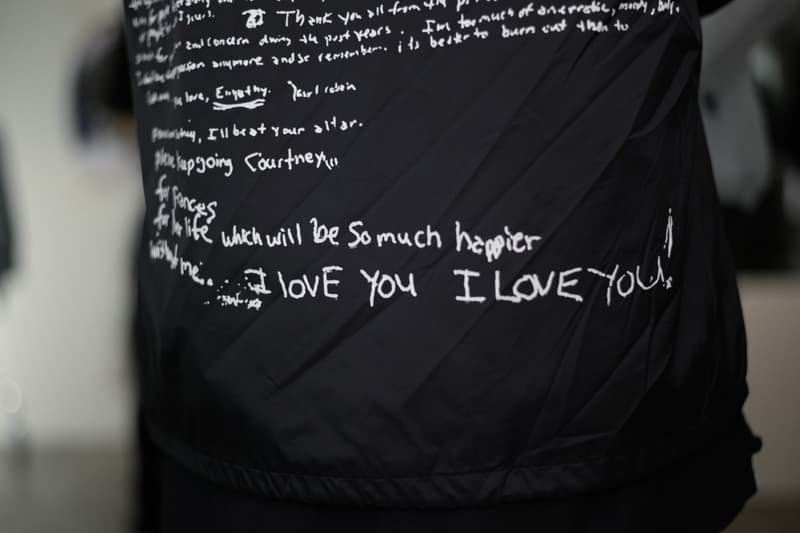 Thank you all from the
and concern during the past years. I'm too much of an erratic, moody, baby.
anymore and so remember. its better to burn out then to
love, Empathy. Kurt Cobain
I'll be at your altar.
please keep going Courtney
for Frances
for her life which will be so much happier
without me. I LOVE YOU I LOVE YOU!